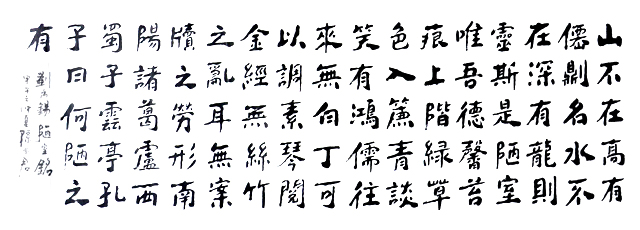 山不在高有
僊則名水不
在深有龍則
靈斯是陋室
唯吾德馨苔
痕上階緑草
色入簾青談
笑有鴻儒往
來無白丁可
以調素琴閱
金經無絲竹
之亂耳無案
牘之勞形南
陽諸葛廬西
蜀子雲亭孔
子曰何陋之
有
劉禹錫陋室銘